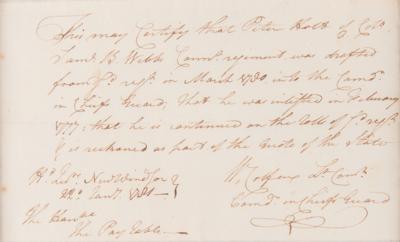 This may Certify that Peter Holt of Colo.
Saml. B. Webb Connt. regiment was drafted
from sd. regt. in March 1780 into the Comdr.
in Chiefs Guard, that he was inlisted in February
1777 that he is continued on the roll of sd. regt.
& is reckoned as part of the quota of the State
Hd. Qrs. New Windsor
Jany. 1781
Wm. Colfax Lt. Comt.
Comdr. in Chiefs Guard
The Pay Table